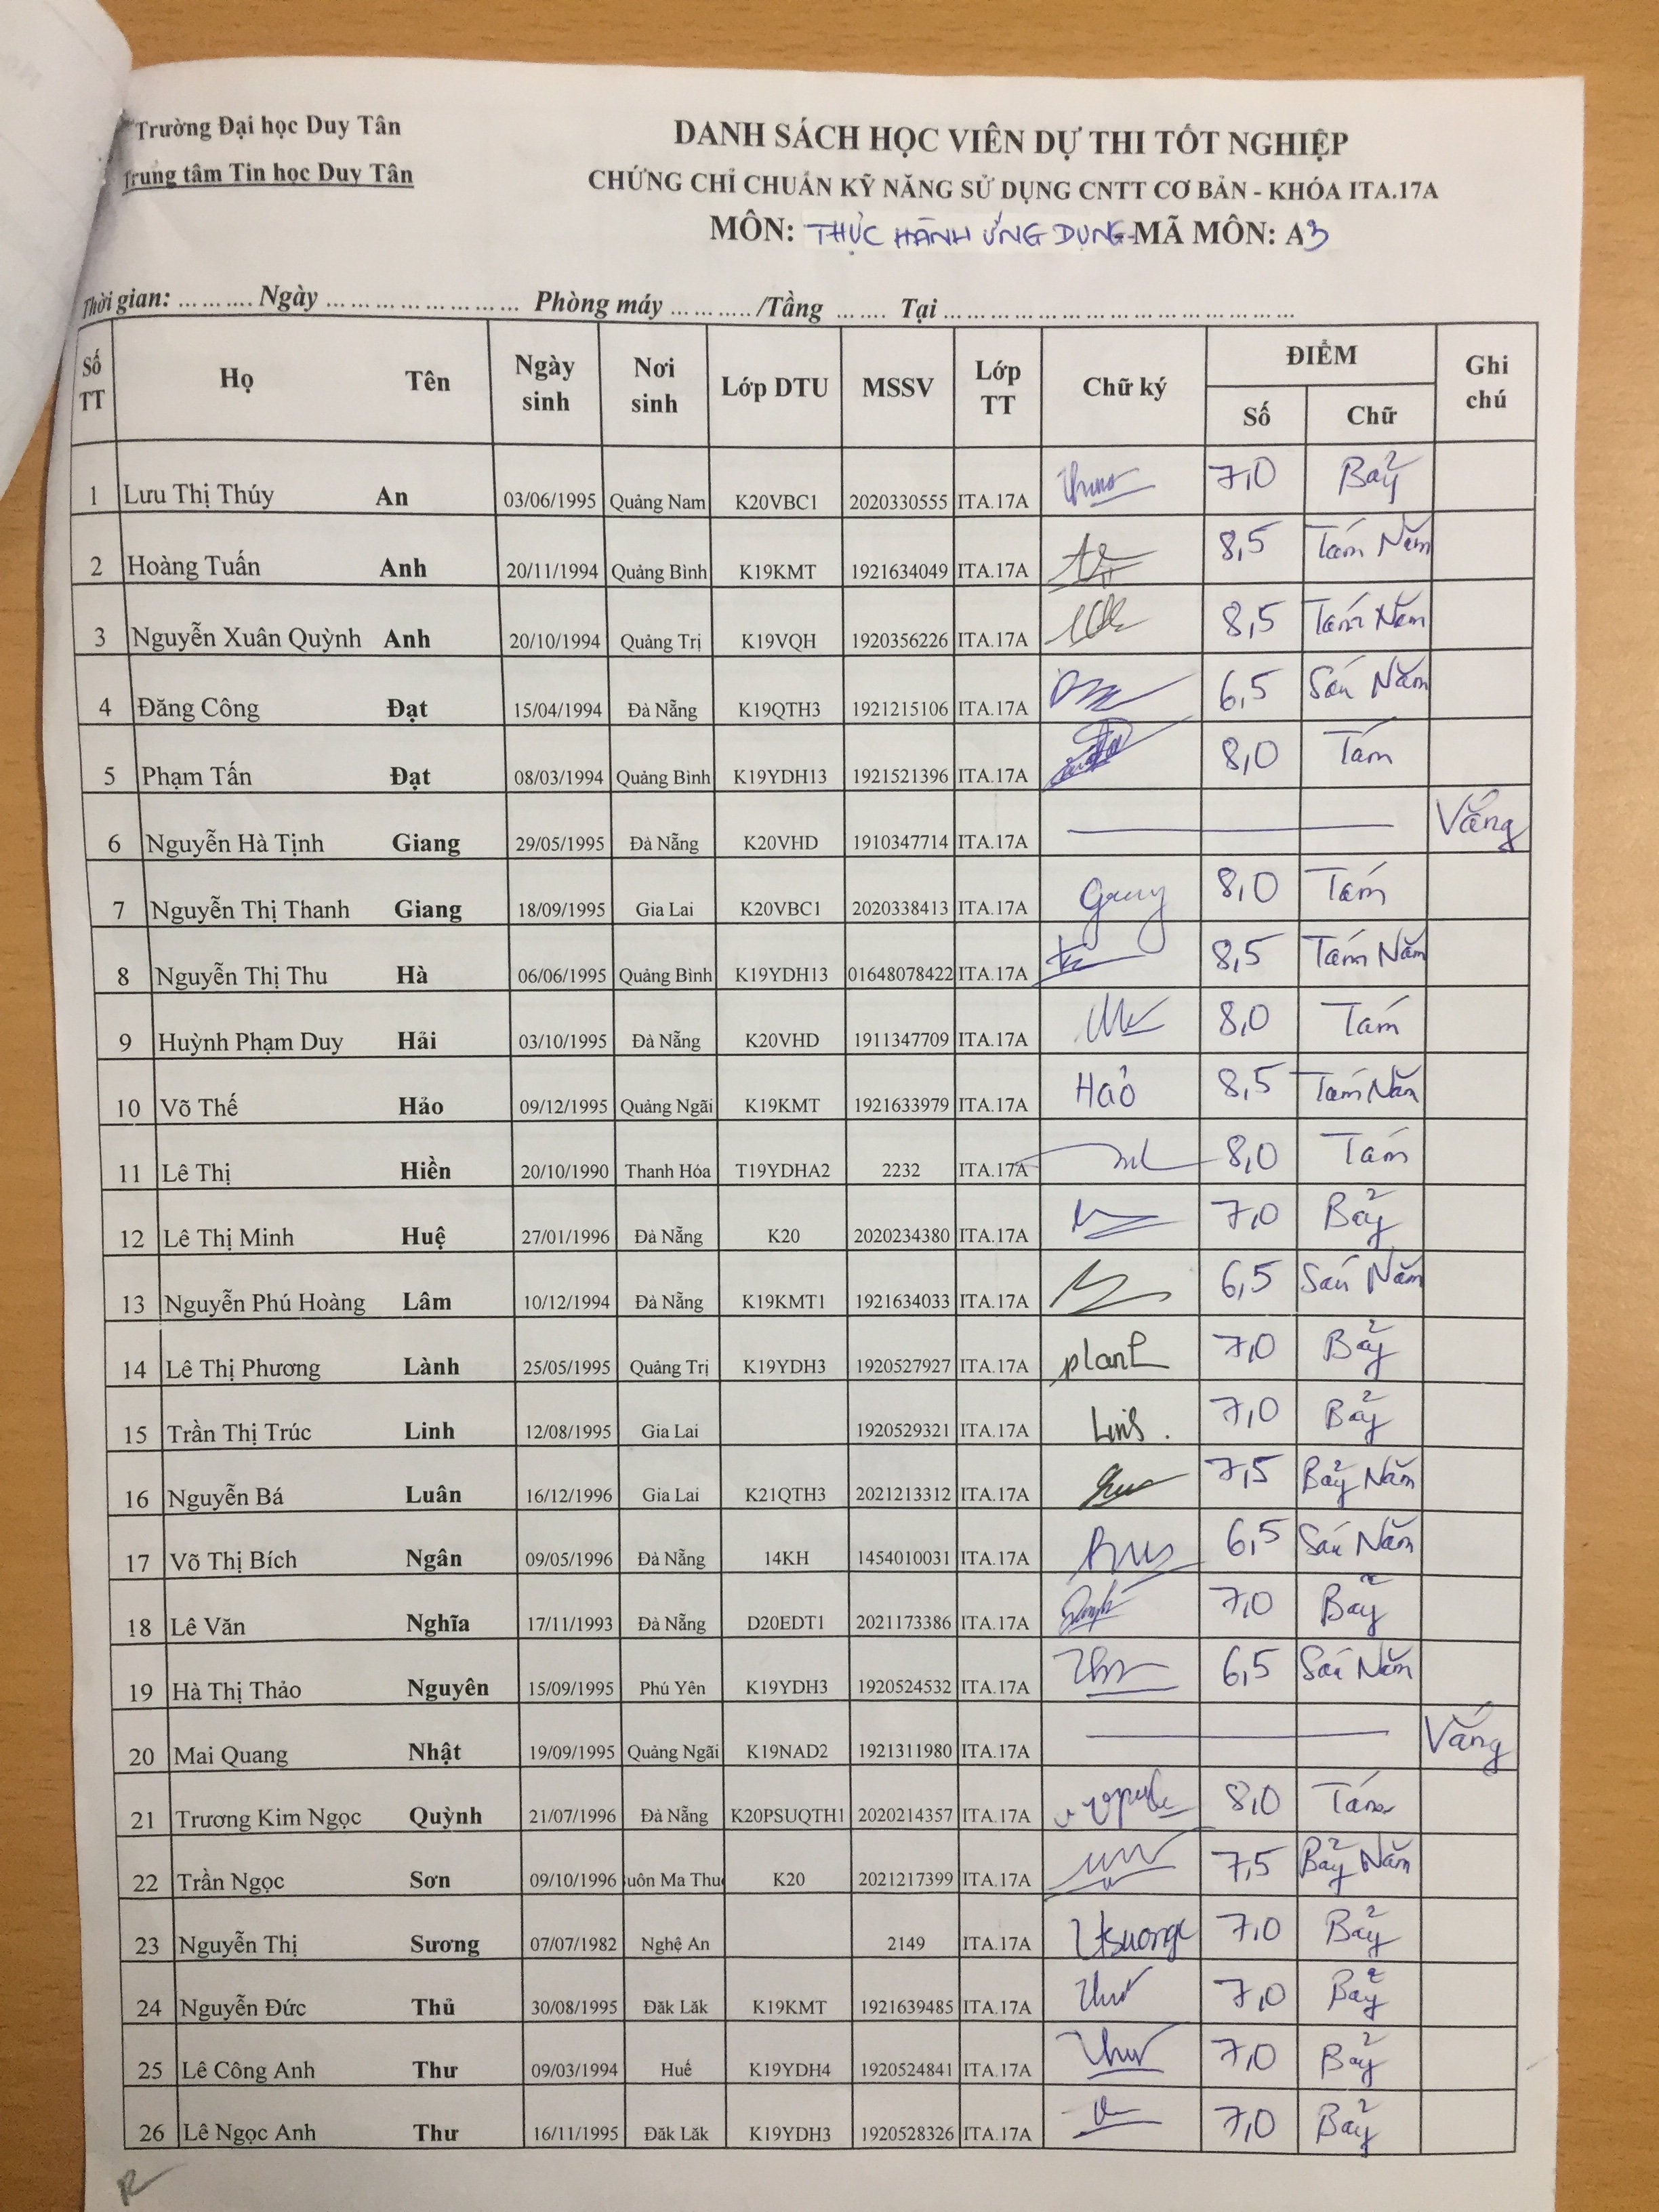 Trường Đại học Duy Tân
Trung tâm Tin học Duy Tân
DANH SÁCH HỌC VIÊN DỰ THI TỐT NGHIỆP
CHỨNG CHỈ CHUẨN KỸ NĂNG SỬ DỤNG CNTT CƠ BẢN - KHÓA ITA.17A
MÔN: THỰC HÀNH ỨNG DỤNG - MÃ MÔN: A3
Thời gian: ......... Ngày ........................ Phòng máy .........../Tầng ....... Tại ..........................................
Số TT Họ Tên Ngày sinh Nơi sinh Lớp DTU MSSV Lớp TT Chữ ký ĐIỂM Số Chữ Ghi chú
1 Lưu Thị Thúy An 03/06/1995 Quảng Nam K20VBC1 2020330555 ITA.17A 7,0 Bảy
2 Hoàng Tuấn Anh 20/11/1994 Quảng Bình K19KMT 1921634049 ITA.17A 8,5 Tám Năm
3 Nguyễn Xuân Quỳnh Anh 20/10/1994 Quảng Trị K19VQH 1920356226 ITA.17A 8,5 Tám Năm
4 Đăng Công Đạt 15/04/1994 Đà Nẵng K19QTH3 1921215106 ITA.17A 6,5 Sáu Năm
5 Phạm Tấn Đạt 08/03/1994 Quảng Bình K19YDH13 1921521396 ITA.17A 8,0 Tám
6 Nguyễn Hà Tịnh Giang 29/05/1995 Đà Nẵng K20VHD 1910347714 ITA.17A Vắng
7 Nguyễn Thị Thanh Giang 18/09/1995 Gia Lai K20VBC1 2020338413 ITA.17A Giang 8,0 Tám
8 Nguyễn Thị Thu Hà 06/06/1995 Quảng Bình K19YDH13 01648078422 ITA.17A 8,5 Tám Năm
9 Huỳnh Phạm Duy Hải 03/10/1995 Đà Nẵng K20VHD 1911347709 ITA.17A 8,0 Tám
10 Võ Thế Hảo 09/12/1995 Quảng Ngãi K19KMT 1921633979 ITA.17A Hảo 8,5 Tám Năm
11 Lê Thị Hiền 20/10/1990 Thanh Hóa T19YDHA2 2232 ITA.17A 8,0 Tám
12 Lê Thị Minh Huệ 27/01/1996 Đà Nẵng K20 2020234380 ITA.17A 7,0 Bảy
13 Nguyễn Phú Hoàng Lâm 10/12/1994 Đà Nẵng K19KMT1 1921634033 ITA.17A 6,5 Sáu Năm
14 Lê Thị Phương Lành 25/05/1995 Quảng Trị K19YDH3 1920527927 ITA.17A 7,0 Bảy
15 Trần Thị Trúc Linh 12/08/1995 Gia Lai 1920529321 ITA.17A 7,0 Bảy
16 Nguyễn Bá Luân 16/12/1996 Gia Lai K21QTH3 2021213312 ITA.17A 7,5 Bảy Năm
17 Võ Thị Bích Ngân 09/05/1996 Đà Nẵng 14KH 1454010031 ITA.17A 6,5 Sáu Năm
18 Lê Văn Nghĩa 17/11/1993 Đà Nẵng D20EDT1 2021173386 ITA.17A 7,0 Bảy
19 Hà Thị Thảo Nguyên 15/09/1995 Phú Yên K19YDH3 1920524532 ITA.17A 6,5 Sáu Năm
20 Mai Quang Nhật 19/09/1995 Quảng Ngãi K19NAD2 1921311980 ITA.17A Vắng
21 Trương Kim Ngọc Quỳnh 21/07/1996 Đà Nẵng K20PSUQTH1 2020214357 ITA.17A 8,0 Tám
22 Trần Ngọc Sơn 09/10/1996 uôn Ma Thu K20 2021217399 ITA.17A 7,5 Bảy Năm
23 Nguyễn Thị Sương 07/07/1982 Nghệ An 2149 ITA.17A 7,0 Bảy
24 Nguyễn Đức Thủ 30/08/1995 Đăk Lăk K19KMT 1921639485 ITA.17A 7,0 Bảy
25 Lê Công Anh Thư 09/03/1994 Huế K19YDH4 1920524841 ITA.17A Thư 7,0 Bảy
26 Lê Ngọc Anh Thư 16/11/1995 Đăk Lăk K19YDH3 1920528326 ITA.17A 7,0 Bảy